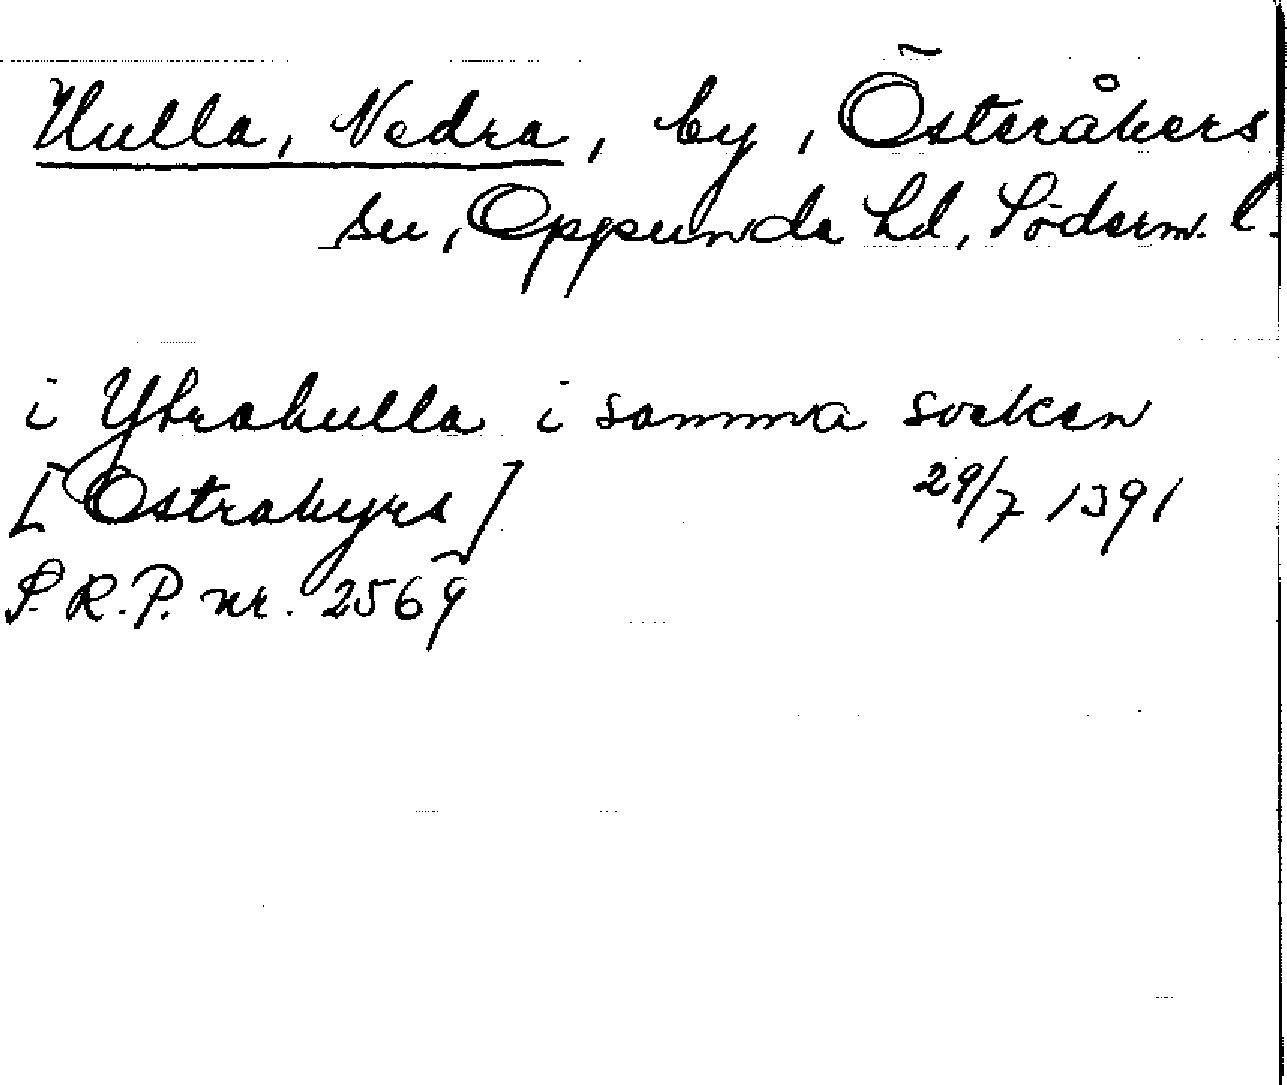 Hulla, Nedra, by, Österåkers
sn, Oppunda hd, Söderm. l.
i Ytrahulla i samma socken
[Ostrakyrs] 29/7 1391
S.R.P. nr. 2569